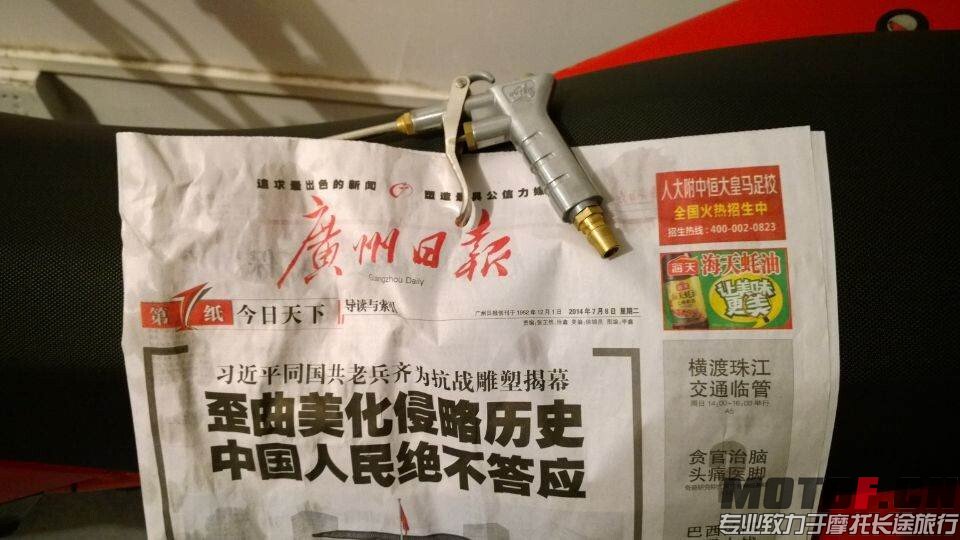 追求最出色的新闻
塑造最具公信力媒
廣州日報
Guangzhou Daily
第1纸 今日天下 导读与索引
广州日报创刊于1952年12月1日 2014年7月8日 星期二
习近平同国共老兵齐为抗战雕塑揭幕
歪曲美化侵略历史
中国人民绝不答应
人大附中恒大皇马足校
全国火热招生中
招生热线:400-002-0823
海天 海天蚝油
让美味
更美
横渡珠江
交通临管
周日 14:00~16:00举行
A5
贪官治脑
头痛医脚
巴西
MOTOF.CN
专业致力于摩托长途旅行